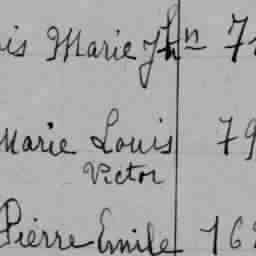 is Marie Jhn 7
Marie Louis 79
Victor
Pierre Emile 16